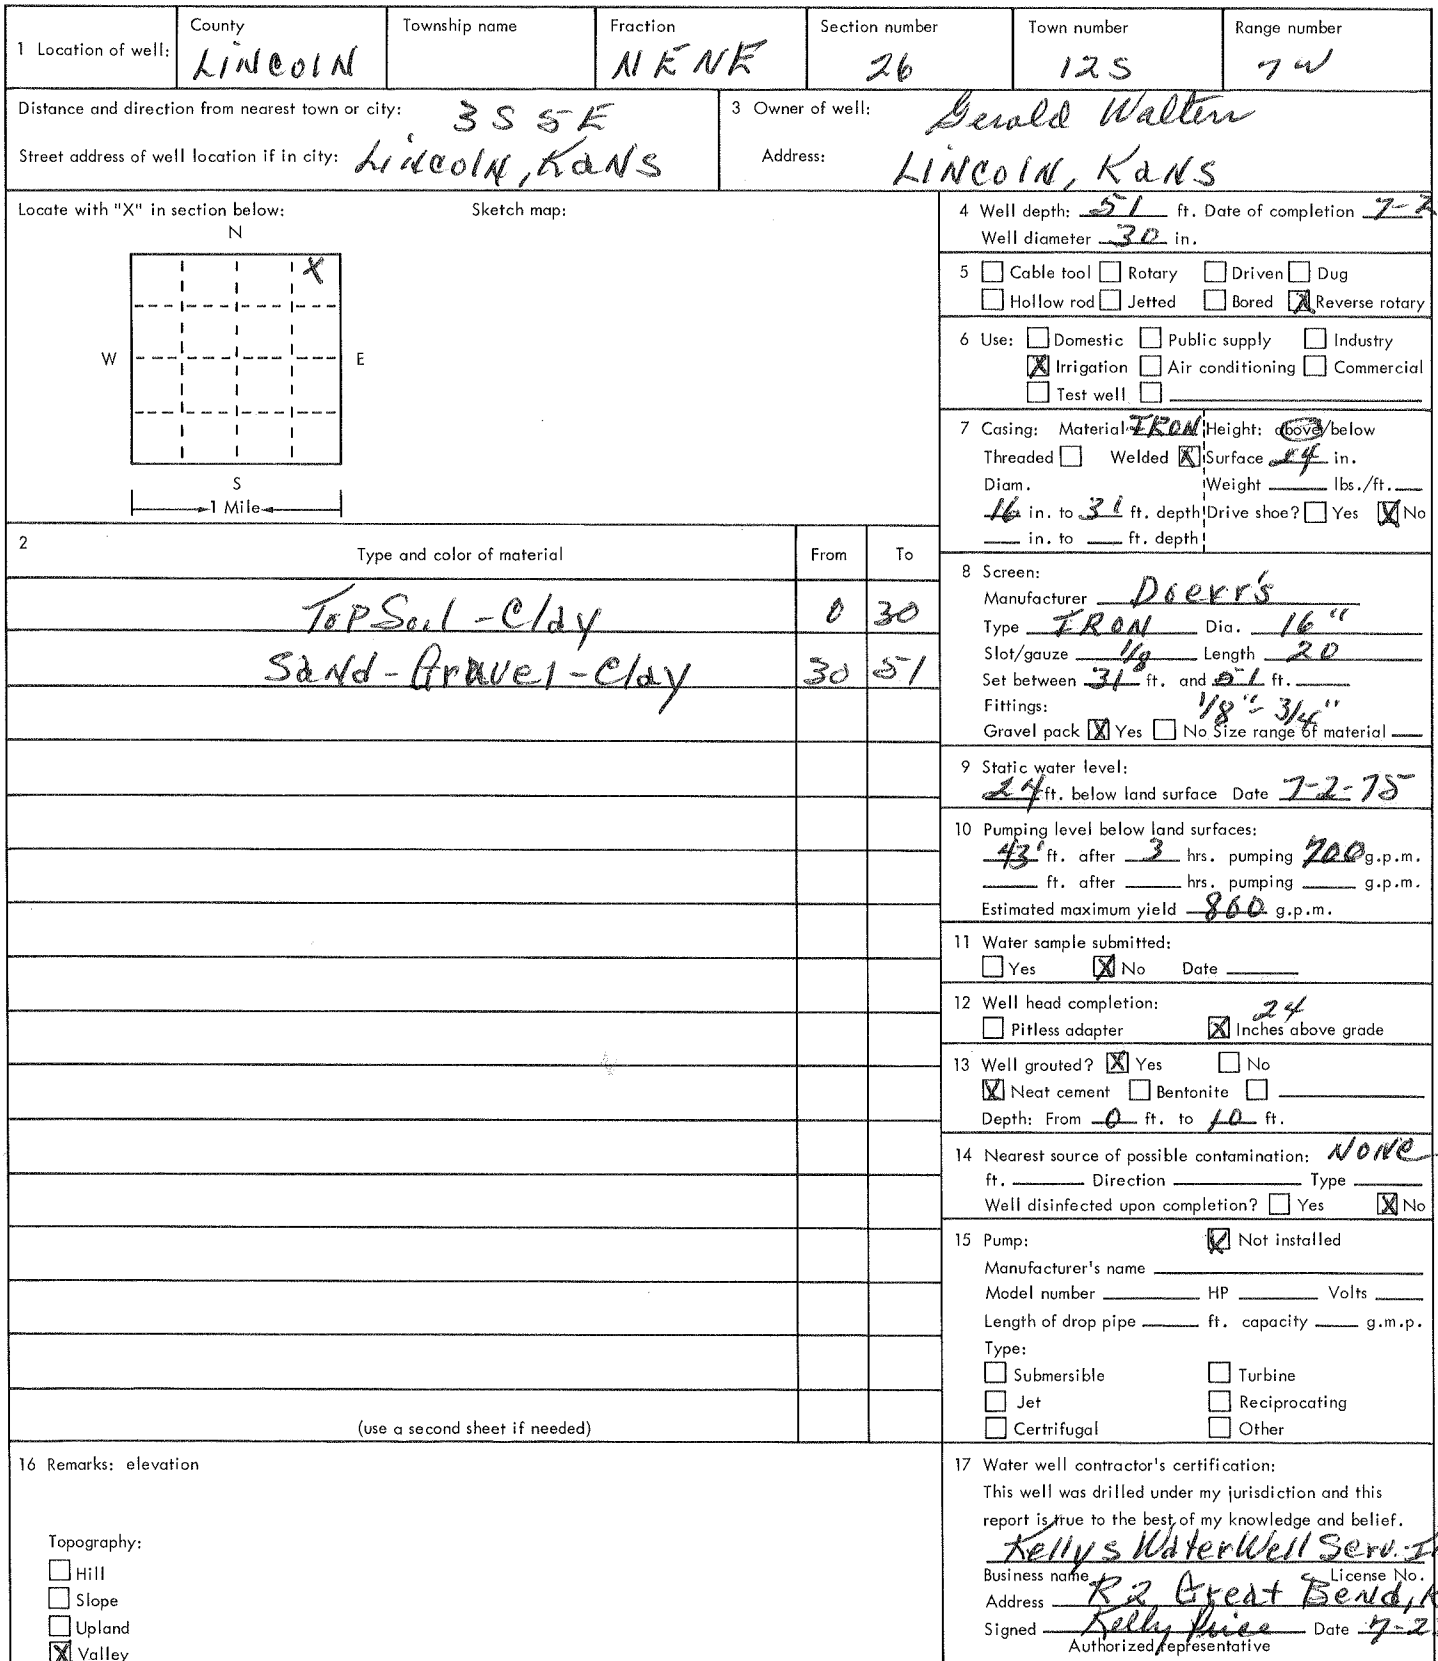 1 Location of well: County LINCOLN Township name Fraction NENE Section number 26 Town number 12S Range number 7W
Distance and direction from nearest town or city: 3S 5E
Street address of well location if in city: LINCOLN, KANS
3 Owner of well: Gerald Walters
Address: LINCOLN, KANS
Locate with "X" in section below: Sketch map:
N
X
W E
S
1 Mile
2 Type and color of material From To
Top Soil - Clay 0 30
Sand - Gravel - Clay 30 51
(use a second sheet if needed)
4 Well depth: 51 ft. Date of completion 7-2
Well diameter 30 in.
5 Cable tool Rotary Driven Dug
Hollow rod Jetted Bored X Reverse rotary
6 Use: Domestic Public supply Industry
X Irrigation Air conditioning Commercial
Test well
7 Casing: Material IRON Height: above/below
Threaded Welded X Surface 24 in.
Diam. Weight lbs./ft.
16 in. to 31 ft. depth Drive shoe? Yes X No
in. to ft. depth
8 Screen:
Manufacturer Doerr's
Type IRON Dia. 16"
Slot/gauze 1/8 Length 20
Set between 31 ft. and 51 ft.
Fittings: 1/8"- 3/4"
Gravel pack X Yes No Size range of material
9 Static water level:
24 ft. below land surface Date 7-2-75
10 Pumping level below land surfaces:
43' ft. after 3 hrs. pumping 700 g.p.m.
ft. after hrs. pumping g.p.m.
Estimated maximum yield 800 g.p.m.
11 Water sample submitted:
Yes X No Date
12 Well head completion: 24
Pitless adapter X Inches above grade
13 Well grouted? X Yes No
X Neat cement Bentonite
Depth: From 0 ft. to 10 ft.
14 Nearest source of possible contamination: NONE
ft. Direction Type
Well disinfected upon completion? Yes X No
15 Pump: X Not installed
Manufacturer's name
Model number HP Volts
Length of drop pipe ft. capacity g.m.p.
Type:
Submersible Turbine
Jet Reciprocating
Certrifugal Other
16 Remarks: elevation
Topography:
Hill
Slope
Upland
X Valley
17 Water well contractor's certification:
This well was drilled under my jurisdiction and this
report is true to the best of my knowledge and belief.
Kellys Water Well Serv. I
Business name License No.
Address R2 Great Bend, K
Signed Kelly Price Date 7-2
Authorized representative